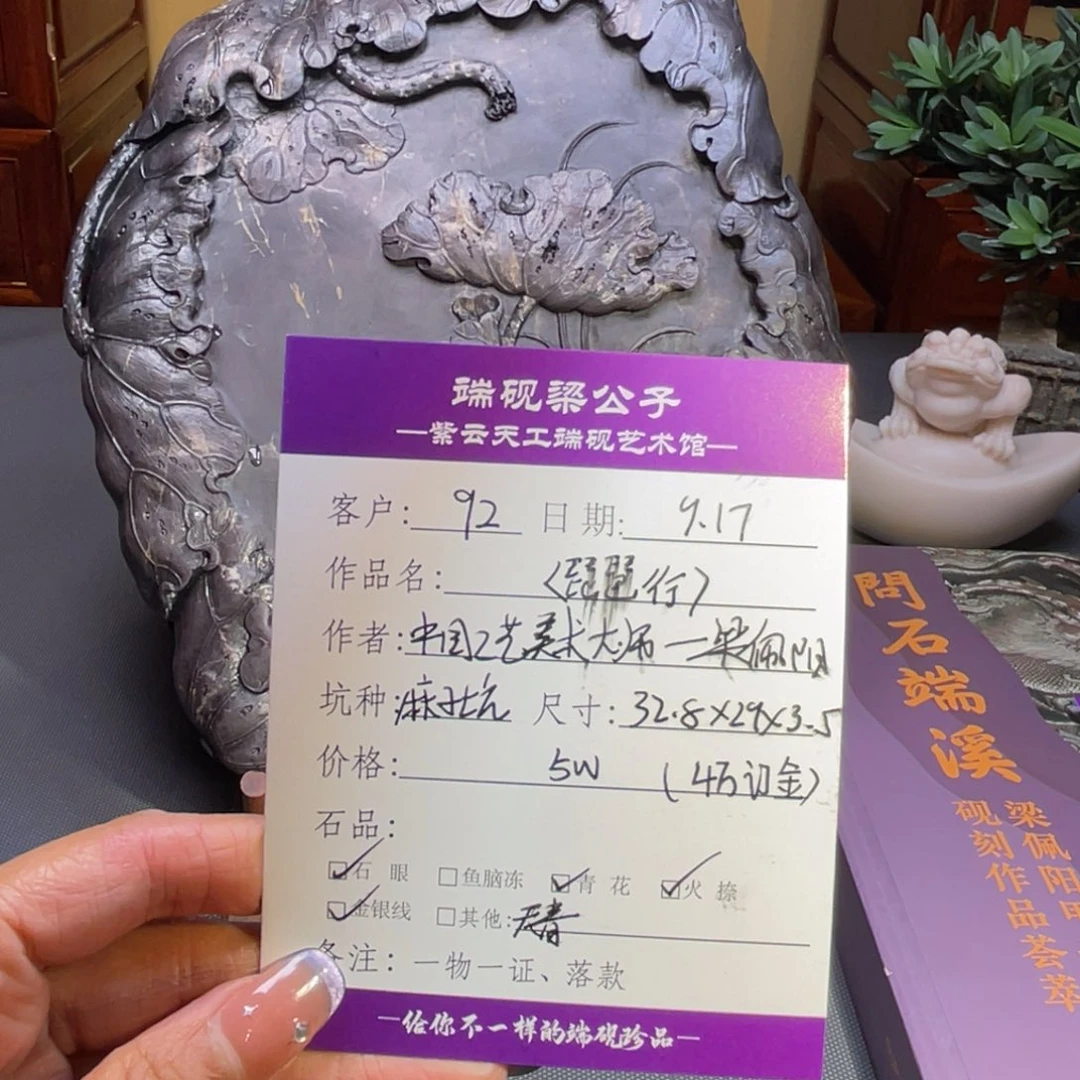 端砚梁公子
—紫云天工端砚艺术馆—
客户: 92 日期: 9.17
作品名: 〈琵琶行〉
作者: 中国工艺美术大师—梁佩阳
坑种: 麻子坑 尺寸: 32.8×29×3.5
价格: 5W (4万订金)
石品:
☑石眼 □鱼脑冻 ☑青花 ☑火捺
☑金银线 □其他: 天青
备注: 一物一证、落款
—给你不一样的端砚珍品—
問石端溪
梁佩阳
砚刻作品荟萃